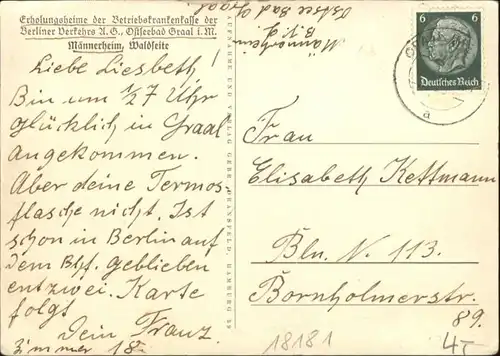 Erholungsheime der Betriebskrankenkasse der
Berliner Verkehrs A.G., Ostseebad Graal i.M.
Männerheim, Waldseite
Liebe Liesbeth!
Bin um 1/27 Uhr
glücklich in Graal
angekommen.
Aber deine Termos-
flasche nicht. Ist
schon in Berlin auf
dem Bhf. geblieben
entzwei. Karte
folgt
Dein Franz.
Zimmer 18.
AUFNAHME UND VERLAG GEBR. DRANSFELD, HAMBURG 23
Männerheim
B.V.G.
Ostsee Bad Graal
6 6
Deutsches Reich
a
Frau
Elisabeth Kettmann
Bln. N. 113.
Bornholmerstr.
89.
18181
4,-